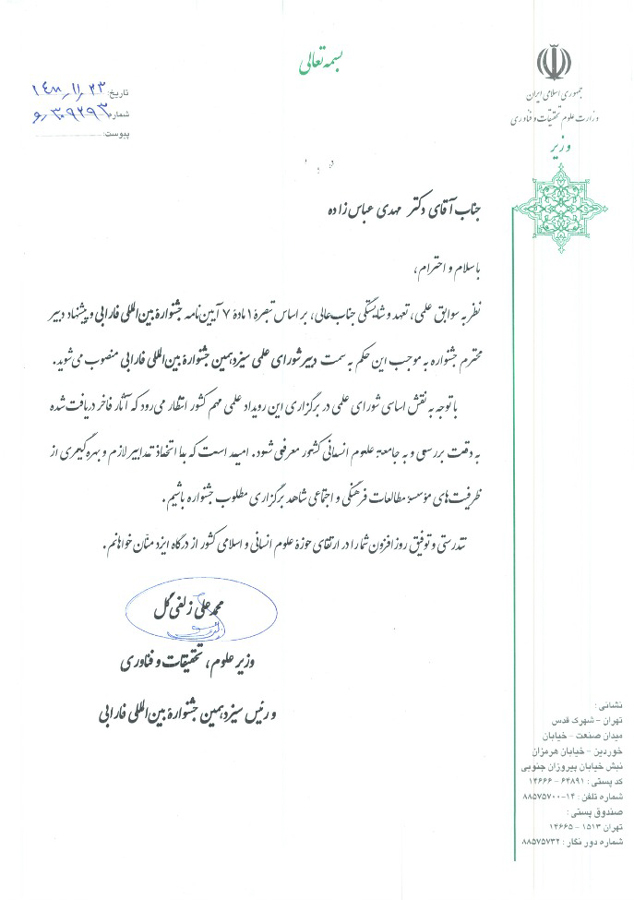 بسمه تعالی
جمهوری اسلامی ایران
وزارت علوم تحقیقات و فناوری
وزیر
تاریخ: ۱۴۰۰٫۱۱٫۲۳
شماره: ۳۰۹۲۹۳٫و
پیوست:
جناب آقای دکتر مهدی عباس زاده
با سلام و احترام،
نظر به سوابق علمی، تعهد و شایستگی جناب‌عالی، بر اساس تبصرۀ ۱ مادۀ ۷ آیین‌نامه جشنوارۀ بین‌المللی فارابی و پیشنهاد دبیر
محترم جشنواره به موجب این حکم به سمت دبیر شورای علمی سیزدهمین جشنوارۀ بین‌المللی فارابی منصوب می‌شوید.
با توجه به نقش اساسی شورای علمی در برگزاری این رویداد علمی مهم کشور انتظار می‌رود که آثار فاخر دریافت شده
به دقت بررسی و به جامعۀ علوم انسانی کشور معرفی شود. امید است که با اتخاذ تدابیر لازم و بهره‌گیری از
ظرفیت‌های مؤسسۀ مطالعات فرهنگی و اجتماعی شاهد برگزاری مطلوب جشنواره باشیم.
تندرستی و توفیق روزافزون شما را در ارتقای حوزۀ علوم انسانی و اسلامی کشور از درگاه ایزد منّان خواهانم.
محمدعلی زلفی‌گل
وزیر علوم، تحقیقات و فناوری
و رئیس سیزدهمین جشنوارۀ بین‌المللی فارابی
نشانی:
تهران - شهرک قدس
میدان صنعت - خیابان
خوردین - خیابان هرمزان
نبش خیابان پیروزان جنوبی
کد پستی: ۶۴۸۹۱ - ۱۴۶۶۶
شماره تلفن: ۱۴-۸۸۵۷۵۷۰۰
صندوق پستی:
تهران ۱۵۱۳ - ۱۴۶۶۵
شماره دور نگار: ۸۸۵۷۵۷۳۲